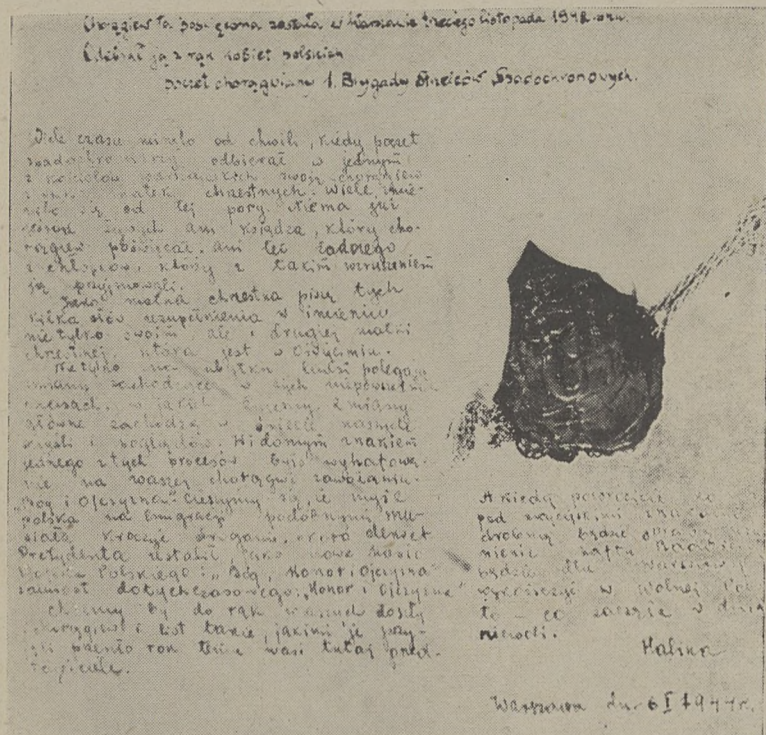 Chorągiew ta poświęcona została w Warszawie trzeciego listopada 1942 roku.
Odebrał ją z rąk kobiet polskich
poczet chorągwiany 1. Brygady Strzelców Spadochronowych.
Wiele czasu minęło od chwili, kiedy poczet
spadochroniarzy odbierał w jednym
z kościołów warszawskich swoją chorągiew
z matek chrzestnych. Wiele zmie-
niło się od tej pory. Niema już
wśród żywych ani księdza, który cho-
rągiew poświęcał, ani też żadnego
z chłopców, którzy z takim wzruszeniem
ją przyjmowali.
Jako matka chrzestna piszę tych
kilka słów uzupełnienia w imieniu
nie tylko swoim, ale i drugiej matki
chrzestnej, która jest w Oświęcimiu.
Nie tylko na ubytku ludzi polegają
zmiany zachodzące w tych
czasach, w jakich żyjemy. Zmiany
główne zachodzą w świecie naszych
myśli i poglądów. Widomym znakiem
jednego z tych procesów było wyhaftowa-
nie na waszej chorągwi zawołania:
„Bóg i Ojczyzna". Cieszymy się, że myśl
polska na Emigracji podobnymi mu-
siała kroczyć drogami, skoro dekret
Prezydenta ustalił jako nowe hasło
Wojska Polskiego: „Bóg, Honor i Ojczyzna"
zamiast dotychczasowego: „Honor i Ojczyzna"
Chcemy by do rąk waszych doszły
chorągiew i list takie, jakimi je przy-
jęli przeszło rok temu wasi tutaj przed-
stawiciele.
A kiedy powrócicie
pod zwycięskimi znakami
drobną będzie
mienić haftu
będzie dla Warszawy
wykończyć w wolnej Pol
to – co zaczęła w dniach
niewoli.
Halina
Warszawa dn. 6 I 1944 r.